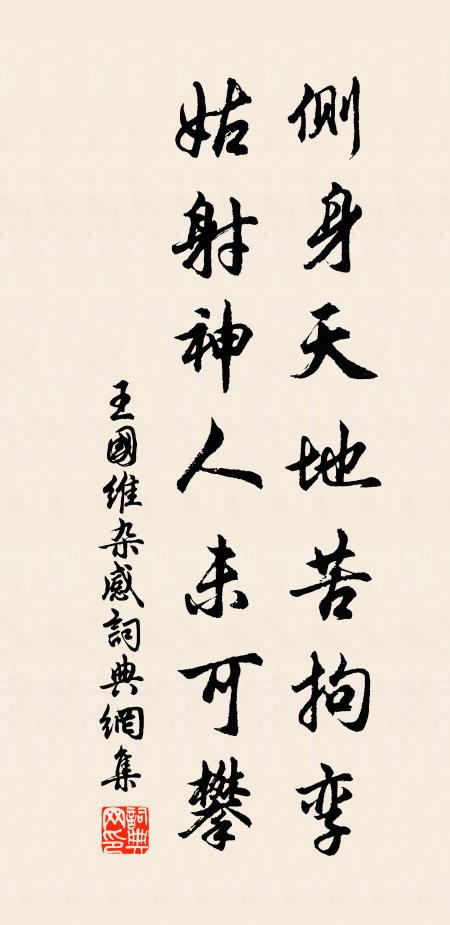 側身天地苦拘孪
姑射神人未可攀
王國維杂感詞典網集
詞典
网印